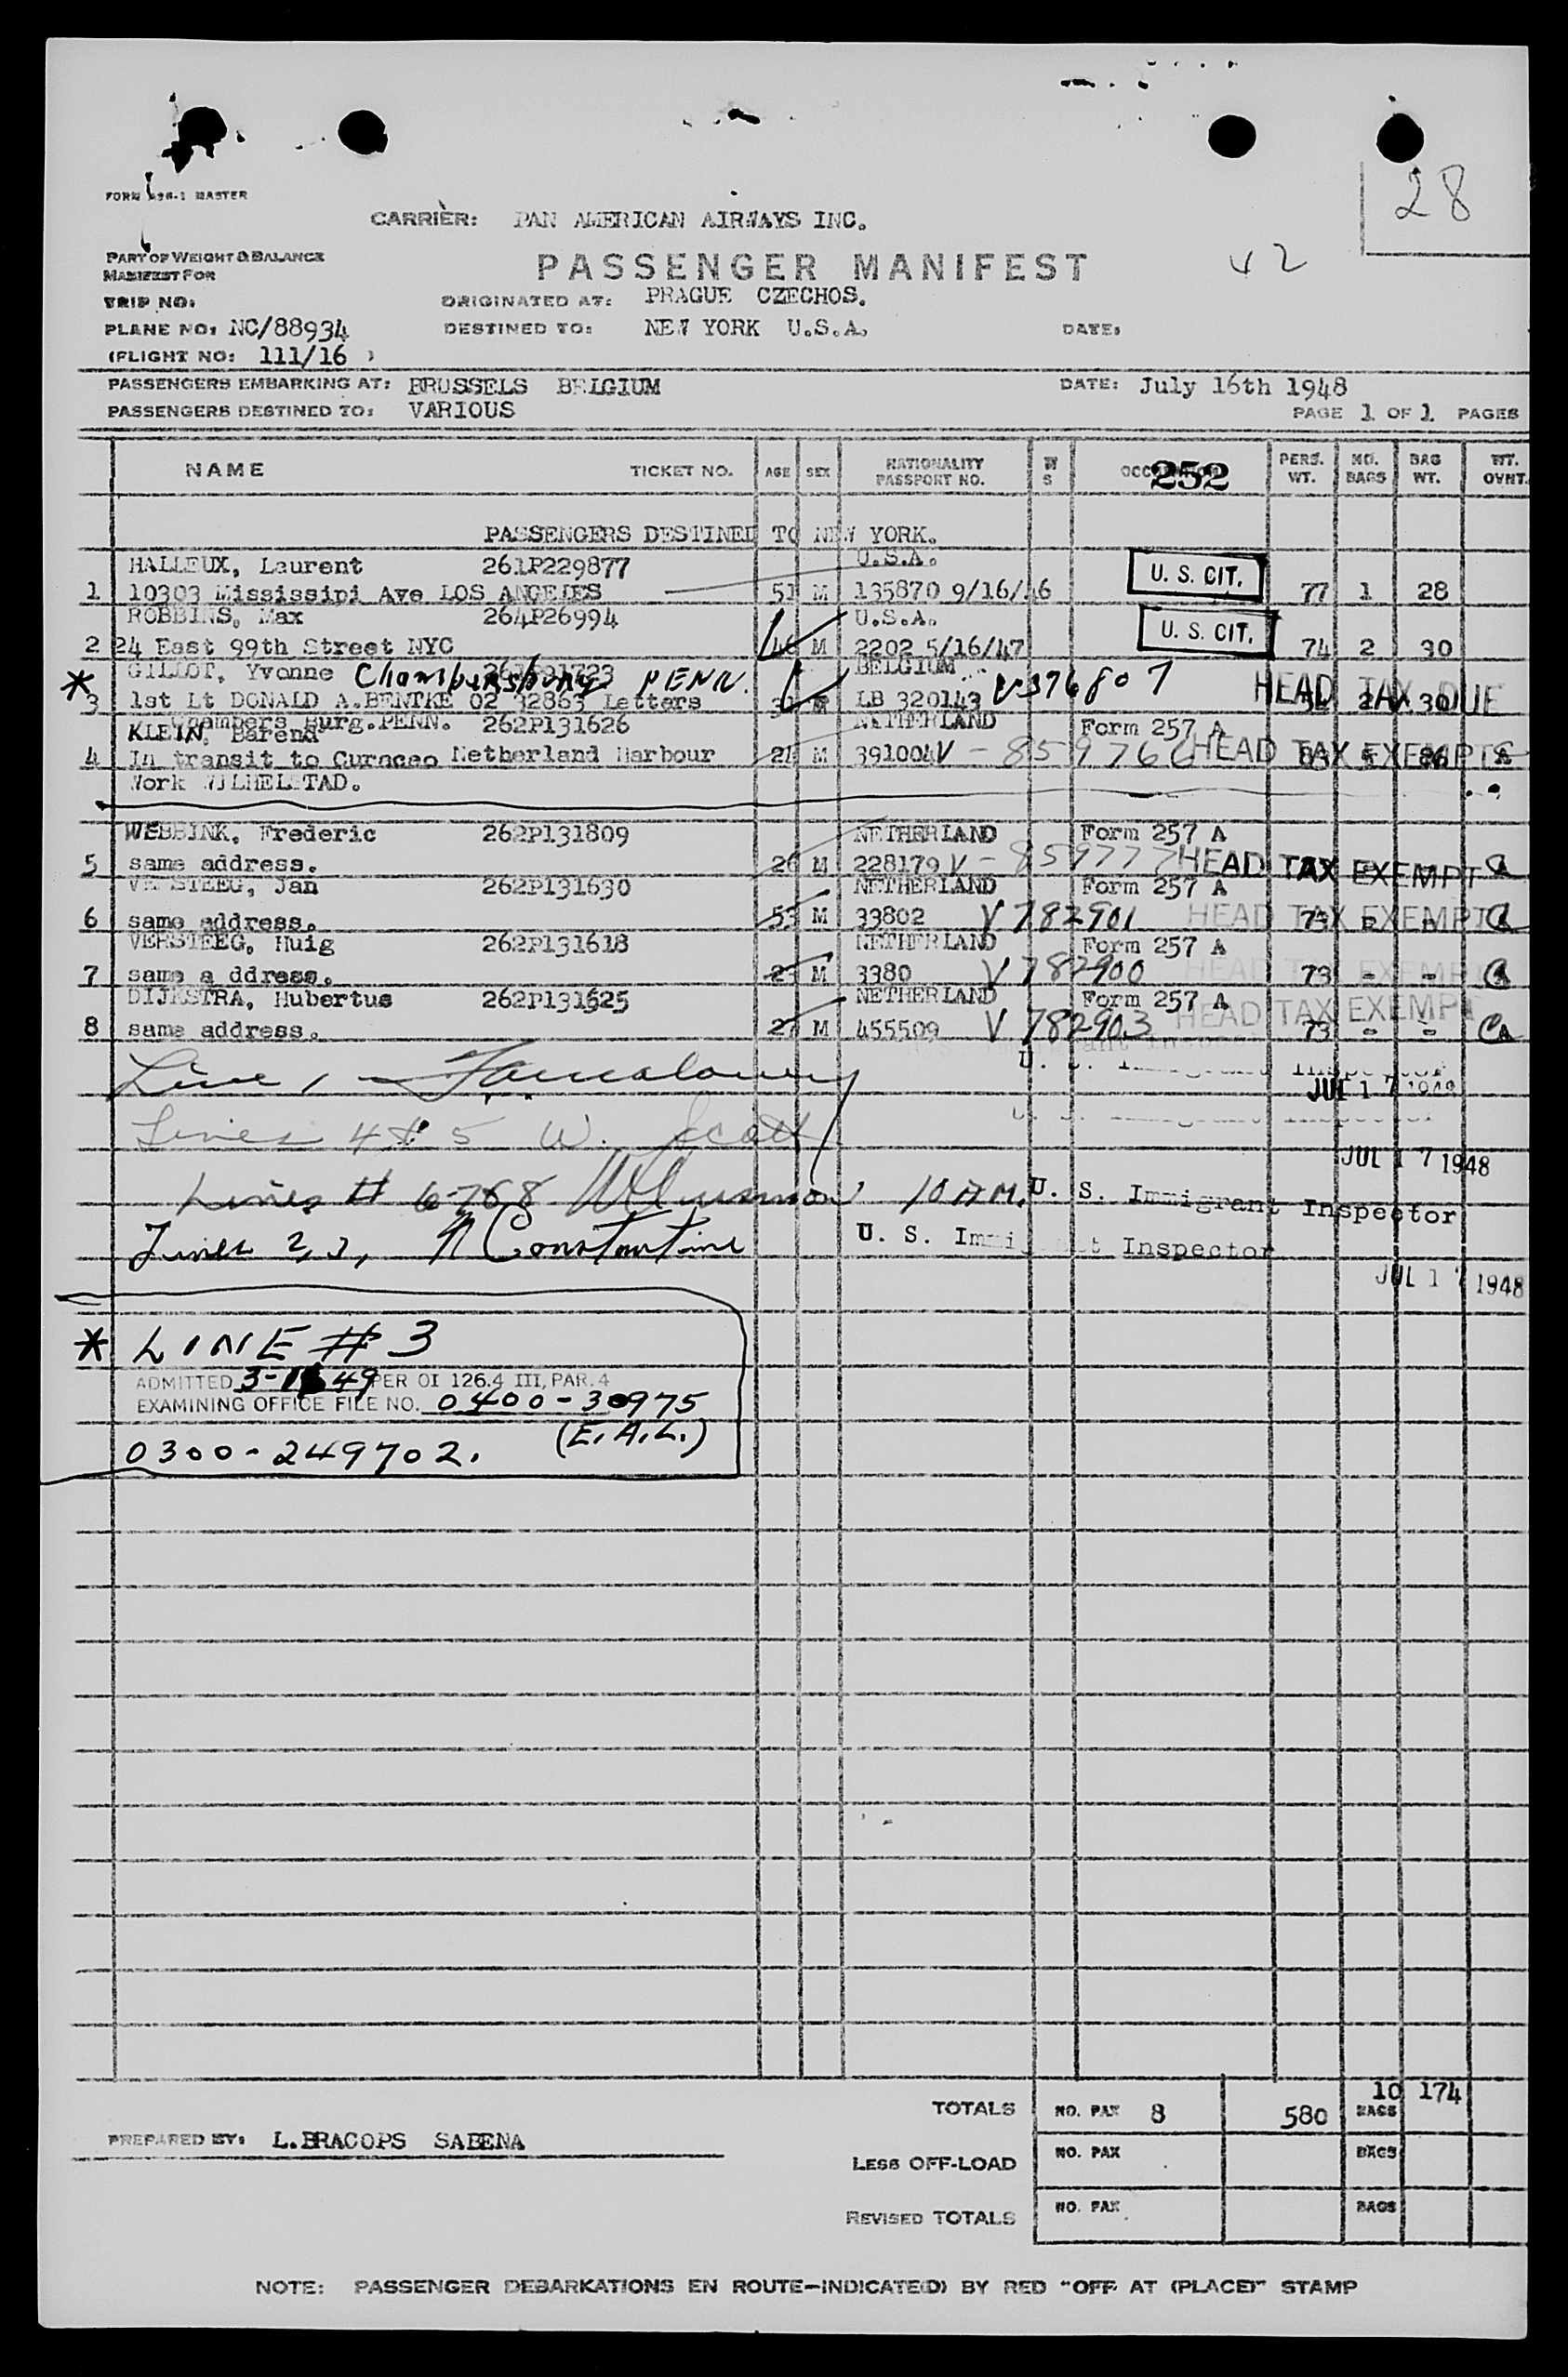 28
FORM
MASTER
CARRIER: PAN AMERICAN AIRWAYS INC.
PART OF WEIGHT & BALANCE
MANIFEST FOR
PASSENGER MANIFEST
42
TRIP NO:
ORIGINATED AT: PRAGUE CZECHOS.
PLANE NO: NC/88934
DESTINED TO: NEW YORK U.S.A.
DATE:
(FLIGHT NO: 111/16 )
PASSENGERS EMBARKING AT: BRUSSELS BELGIUM
DATE: July 16th 1948
PASSENGERS DESTINED TO: VARIOUS
PAGE 1 OF 1 PAGES
NAME TICKET NO. AGE SEX NATIONALITY PASSPORT NO. W S 252 PERS. WT. NO. BAGS BAG WT. WT. OVHT.
PASSENGERS DESTINED TO NEW YORK.
HALLEUX, Laurent 261P229877 U.S.A. U. S. CIT.
1 10303 Mississipi Ave LOS ANGELES 51 M 135870 9/16/46 77 1 28
ROBBINS, Max 264P26994 U.S.A. U. S. CIT.
2 24 East 99th Street NYC 46 M 2202 5/16/47 74 2 30
GILLOT, Yvonne Chambersburg PENN. BELGIUM V376807
* 3 1st Lt DONALD A.BENTKE 02 32863 Letters LB 320143 HEAD TAX DUE 30
Chambers Burg.PENN.
KLEIN, Barend 262P131626 NETHERLAND Form 257 A
4 In transit to Curacao Netherland Harbour 21 M 391004 V-859766 HEAD TAX EXEMPT 86
Work WILHELSTAD.
WEBBINK, Frederic 262P131809 NETHERLAND Form 257 A
5 same address. 26 M 228179 V-859777 HEAD TAX EXEMPT
VERSTEEG, Jan 262P131630 NETHERLAND Form 257 A
6 same address. 53 M 33802 V782901 HEAD TAX EXEMPT
VERSTEEG, Huig 262P131618 NETHERLAND Form 257 A
7 same a ddress. 23 M 3380 V782900 HEAD TAX EXEMPT 73 - -
DIJKSTRA, Hubertus 262P131625 NETHERLAND Form 257 A
8 same address. 27 M 455509 V 782903 HEAD TAX EXEMPT 73 - -
Line 1
JUL 17 1948
Lines 4 & 5 W. Scott
JUL 17 1948
Lines # 6-7&8 10 AM. U. S. Immigrant Inspector
Lines 2,3, N Constantine U. S. Immigrant Inspector
JUL 17 1948
* LINE # 3
ADMITTED 3- 49 PER OI 126.4 III, PAR. 4
EXAMINING OFFICE FILE NO. 0400-30975
0300-249702. (E.A.L.)
10 174
TOTALS NO. PAX 8 580 BAGS
PREPARED BY: L.BRACOPS SABENA
LESS OFF-LOAD NO. PAX BAGS
REVISED TOTALS NO. PAX BAGS
NOTE: PASSENGER DEBARKATIONS EN ROUTE-INDICATE(D) BY RED "OFF AT (PLACE)" STAMP